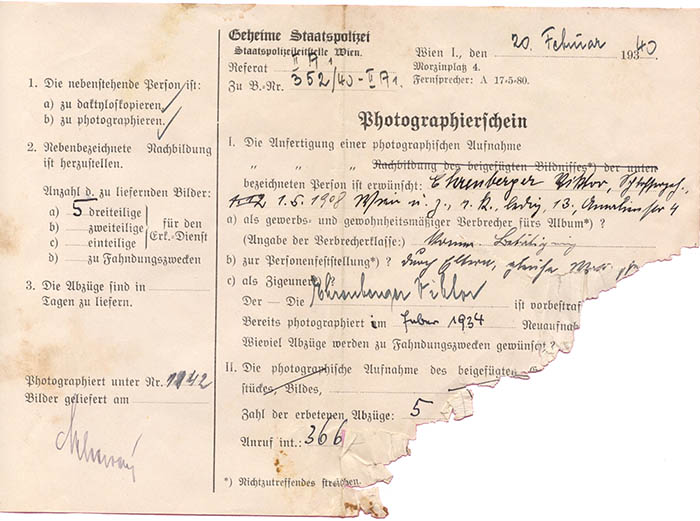 1. Die nebenstehende Person ist:
a) zu daktyloskopieren,
b) zu photographieren.
2. Nebenbezeichnete Nachbildung
ist herzustellen.
Anzahl d. zu liefernden Bilder:
a) 5 dreiteilige
b) zweiteilige
c) einteilige
für den
Erk.-Dienst
d) zu Fahndungszwecken
3. Die Abzüge sind in
Tagen zu liefern.
Photographiert unter Nr. 1942
Bilder geliefert am
Geheime Staatspolizei
Staatspolizeileitstelle Wien.
Referat II A 1
Zu B.-Nr. 352/40-II A 1.
Wien I., den 20. Februar 1940
Morzinplatz 4.
Fernsprecher: A 17-5-80.
Photographierschein
I. Die Anfertigung einer photographischen Aufnahme
" " " Nachbildung des beigefügten Bildnisses*) der unten
bezeichneten Person ist erwünscht: Ehrenberger Viktor,
1.5.1908 Wien
a) als gewerbs- und gewohnheitsmäßiger Verbrecher fürs Album*) ?
(Angabe der Verbrecherklasse): Komm. Betätigung
b) zur Personenfeststellung*) ?
c) als Zigeuner
Der — Die Ehrenberger Viktor ist vorbestraf
Bereits photographiert im Jahre 1934 Neuaufna
Wieviel Abzüge werden zu Fahndungszwecken gewünscht ?
II. Die photographische Aufnahme des beigefügten
stückes, Bildes,
Zahl der erbetenen Abzüge: 5
Anruf int.: 366
*) Nichtzutreffendes streichen.